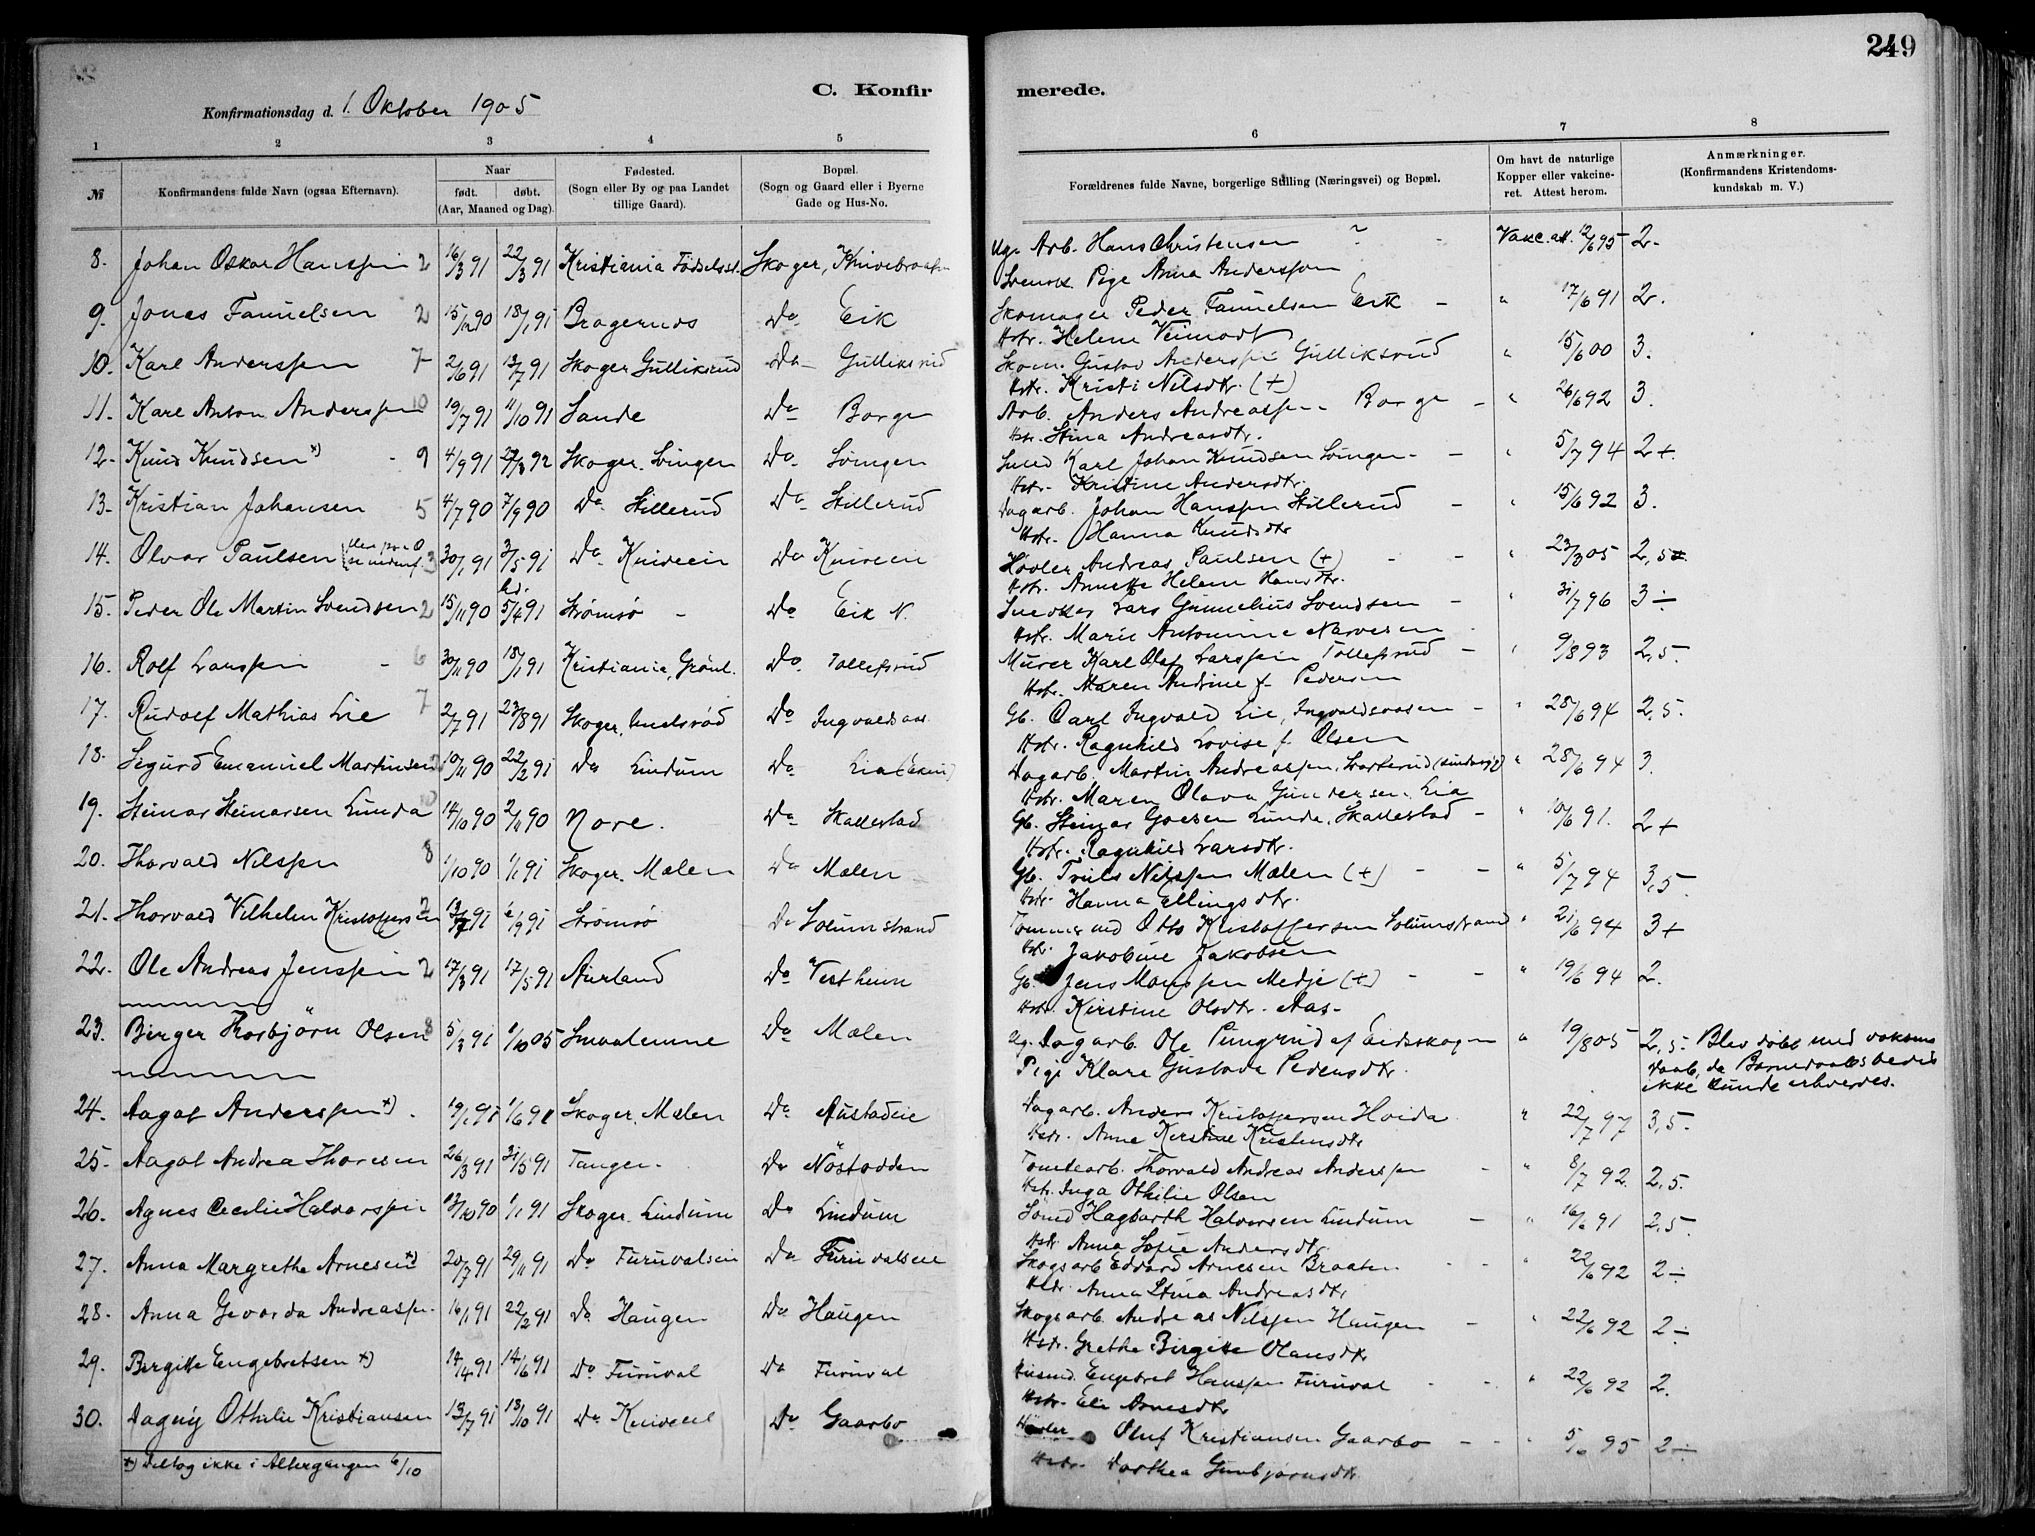 249
C. Konfirmerede.
Konfirmationsdag d. 1. Oktober 1905
1 2 3 4 5 6 7 8
№ Konfirmandens fulde Navn (ogsaa Efternavn). Naar født. døbt. (Aar, Maaned og Dag). Fødested. (Sogn eller By og paa Landet tillige Gaard). Bopæl. (Sogn og Gaard eller i Byerne Gade og Hus-No. Forældrenes fulde Navne, borgerlige Stilling (Næringsvei) og Bopæl. Om havt de naturlige Kopper eller vakcineret. Attest herom. Anmærkninger. (Konfirmandens Kristendomskundskab m. V.)
8. Johan Oskar Hanssen 2 16/3 91 22/3 91 Kristiania Födselsst. Skoger, Ug. Arb. Hans Christensen ? - Vakc.att. 12/6 95 2-
Svensk Pige Anna Anderssen
9. Jonas Fanuelsen 2 15/12 90 18/1 91 Bragernes Do Eik Skomager Peder Fanuelsen Eik - " 17/6 91 2.
Hstr. Helene Veimodt
10. Karl Anderssen 7 2/6 91 12/7 91 Skoger Gulliksrud Do Gulliksrud Skom. Gustav Anderssen Gulliksrud " 15/6 00 3.
Hstr. Kristi Nilsdtr. (+)
11. Karl Anton Anderssen 10 19/7 91 11/10 91 Sande Do Borge Arb. Anders Andreassen Borge - " 26/6 92 3.
Hstr. Stina Andreasdtr.
12. Knud Knudsen +) - 9 4/9 91 27/3 92 Skoger. Svingen Do Svingen Smed Karl Johan Knudsen Svingen - - " 5/7 94 2+.
Hstr. Kristine Andersdtr.
13. Kristian Johansen 5 4/7 90 7/9 90 Do Stillerud Do Stillerud Dagarb. Johan Hanssen Stillerud - " 15/6 92 3.
Hstr. Hanna Knudsdtr
14. Olvar Paulsen 3 30/1 91 3/5 91 Do Kniveen Do Kniveen Høvler Andreas Paulsen (+) - - " 23/3 05 2,5
hd. Hstr. Annette Helene Hansdtr.
15. Peder Ole Martin Svendsen 2 15/11 90 5/4 91 Strømsø - Do Eik N. Snedker Lars Gunnelius Svendsen - " 31/7 96 3÷
Hstr. Marie Antonine Narvesen
16. Rolf Larssen - 6 30/11 90 18/1 91 Kristiania, Grönl. Do Tollefsrud Murer Karl Olaf Larssen Tollefsrud - " 9/8 93 2,5.
Hstr. Maren Andrine f. Pedersen
17. Rudolf Mathias Lie 7 2/7 91 23/8 91 Skoger, Do Ingvaldsaas Gb. Carl Ingvald Lie, Ingvaldsaasen - " 28/6 94 2,5.
Hstr. Ragnhild Lovise f. Olsen
18. Sigurd Emanuel Martinsen 10/11 90 22/2 91 Do Lindum Do Lia (Skui) Dagarb. Martin Andreassen, Svarterud " 28/6 94 3.
Hstr. Maren Olava Gundersen. Lia
19. Steinar Steinarsen Lunda 10 14/10 90 2/11 90 Nore. Do Skallestad Gb. Steinar Goesen Lunde, Skallestad - " 10/6 91. 2+
Hstr. Ragnhild Larsdtr.
20. Thorvald Nilssen 8 1/10 90 1/1 91 Skoger. Mælen Do Mælen Gb. Truls Nilssen Mælen (+) - - " 5/7 94 3,5
Hstr. Hanna Ellingsdtr.
21. Thorvald Vilhelm Kristoffersen 2 13/7 91 6/9 91 Strømsø Do Solumstrand Tommermd Otto Kristoffersen Solumstrand " 21/6 94 3+
Hstr. Jakobine Jakobsen
22. Ole Andreas Jenssen 2 17/3 91 17/5 91 Aurland Do Vestheim Gb. Jens Monssen Medje (+) - - " 19/6 94 2.
Hstr. Kirstine Olsdtr. Aas-
23. Birger Thorbjörn Olsen 8 5/3 91 1/10 05 Smaalenene Do Mælen Ug. Dagarb. Ole Pungrud af Eidsskogen " 19/8 05 2,5. Blev døbt med voksens
Pige Klara Gustava Pedersdtr. daab, da Barnedaabsbevis
ikke kunde erhverves.
24. Aagot Anderssen +). 19/1 91 1/6 91 Skoger. Mælen Do Austadeie Dagarb. Anders Kristoffersen Hoida " 22/7 97 3,5.
Hstr. Anne Kirstine Kristensdtr
25. Aagot Andrea Thoresen 26/3 91 31/5 91 Tangen. Do Nöstodden Tomtearb. Thorvald Andreas Anderssen - " 8/7 92. 2,5.
Hstr. Inga Othilie Olsen
26. Agnes Cecilie Halvorssen 13/10 90 1/1 91 Skoger. Lindum Do Lindum Hagbarth Halvorsen Lindum - " 16/6 91 2,5.
Hstr. Anna Sofie Andersdtr.
27. Anna Margrethe Arnesen +) 20/7 91 29/11 91 Do Furuvalseie Do Furuvalseie Skogsarb. Edvard Arnesen Braaten - - " 22/6 92 2÷
Hstr. Anna Stina Andreasdtr
28. Anna Gevorda Andreassen 16/1 91 22/2 91 Do Haugen Do Haugen Skogsarb Andreas Nilssen Haugen - " 22/6 92 2÷
Hstr. Grethe Birgitte Olausdtr
29. Birgitte Engebretsen +) 14/4 91 14/6 91 Do Furuval Do Furuval Husmd. Engebret Hanssen Furuval - - " 22/6 92 2.
Hstr. Eli Arnesdtr
30. Dagny Othilie Kristiansen 13/7 91 13/10 91 Do Kniveeie Do Gaarbo Høvler Oluf Kristiansen Gaarbo - - " 5/6 95 2÷
+) Deltog ikke i Altergangen 6/10 Hstr. Dorthea Gunbjørnsdtr.